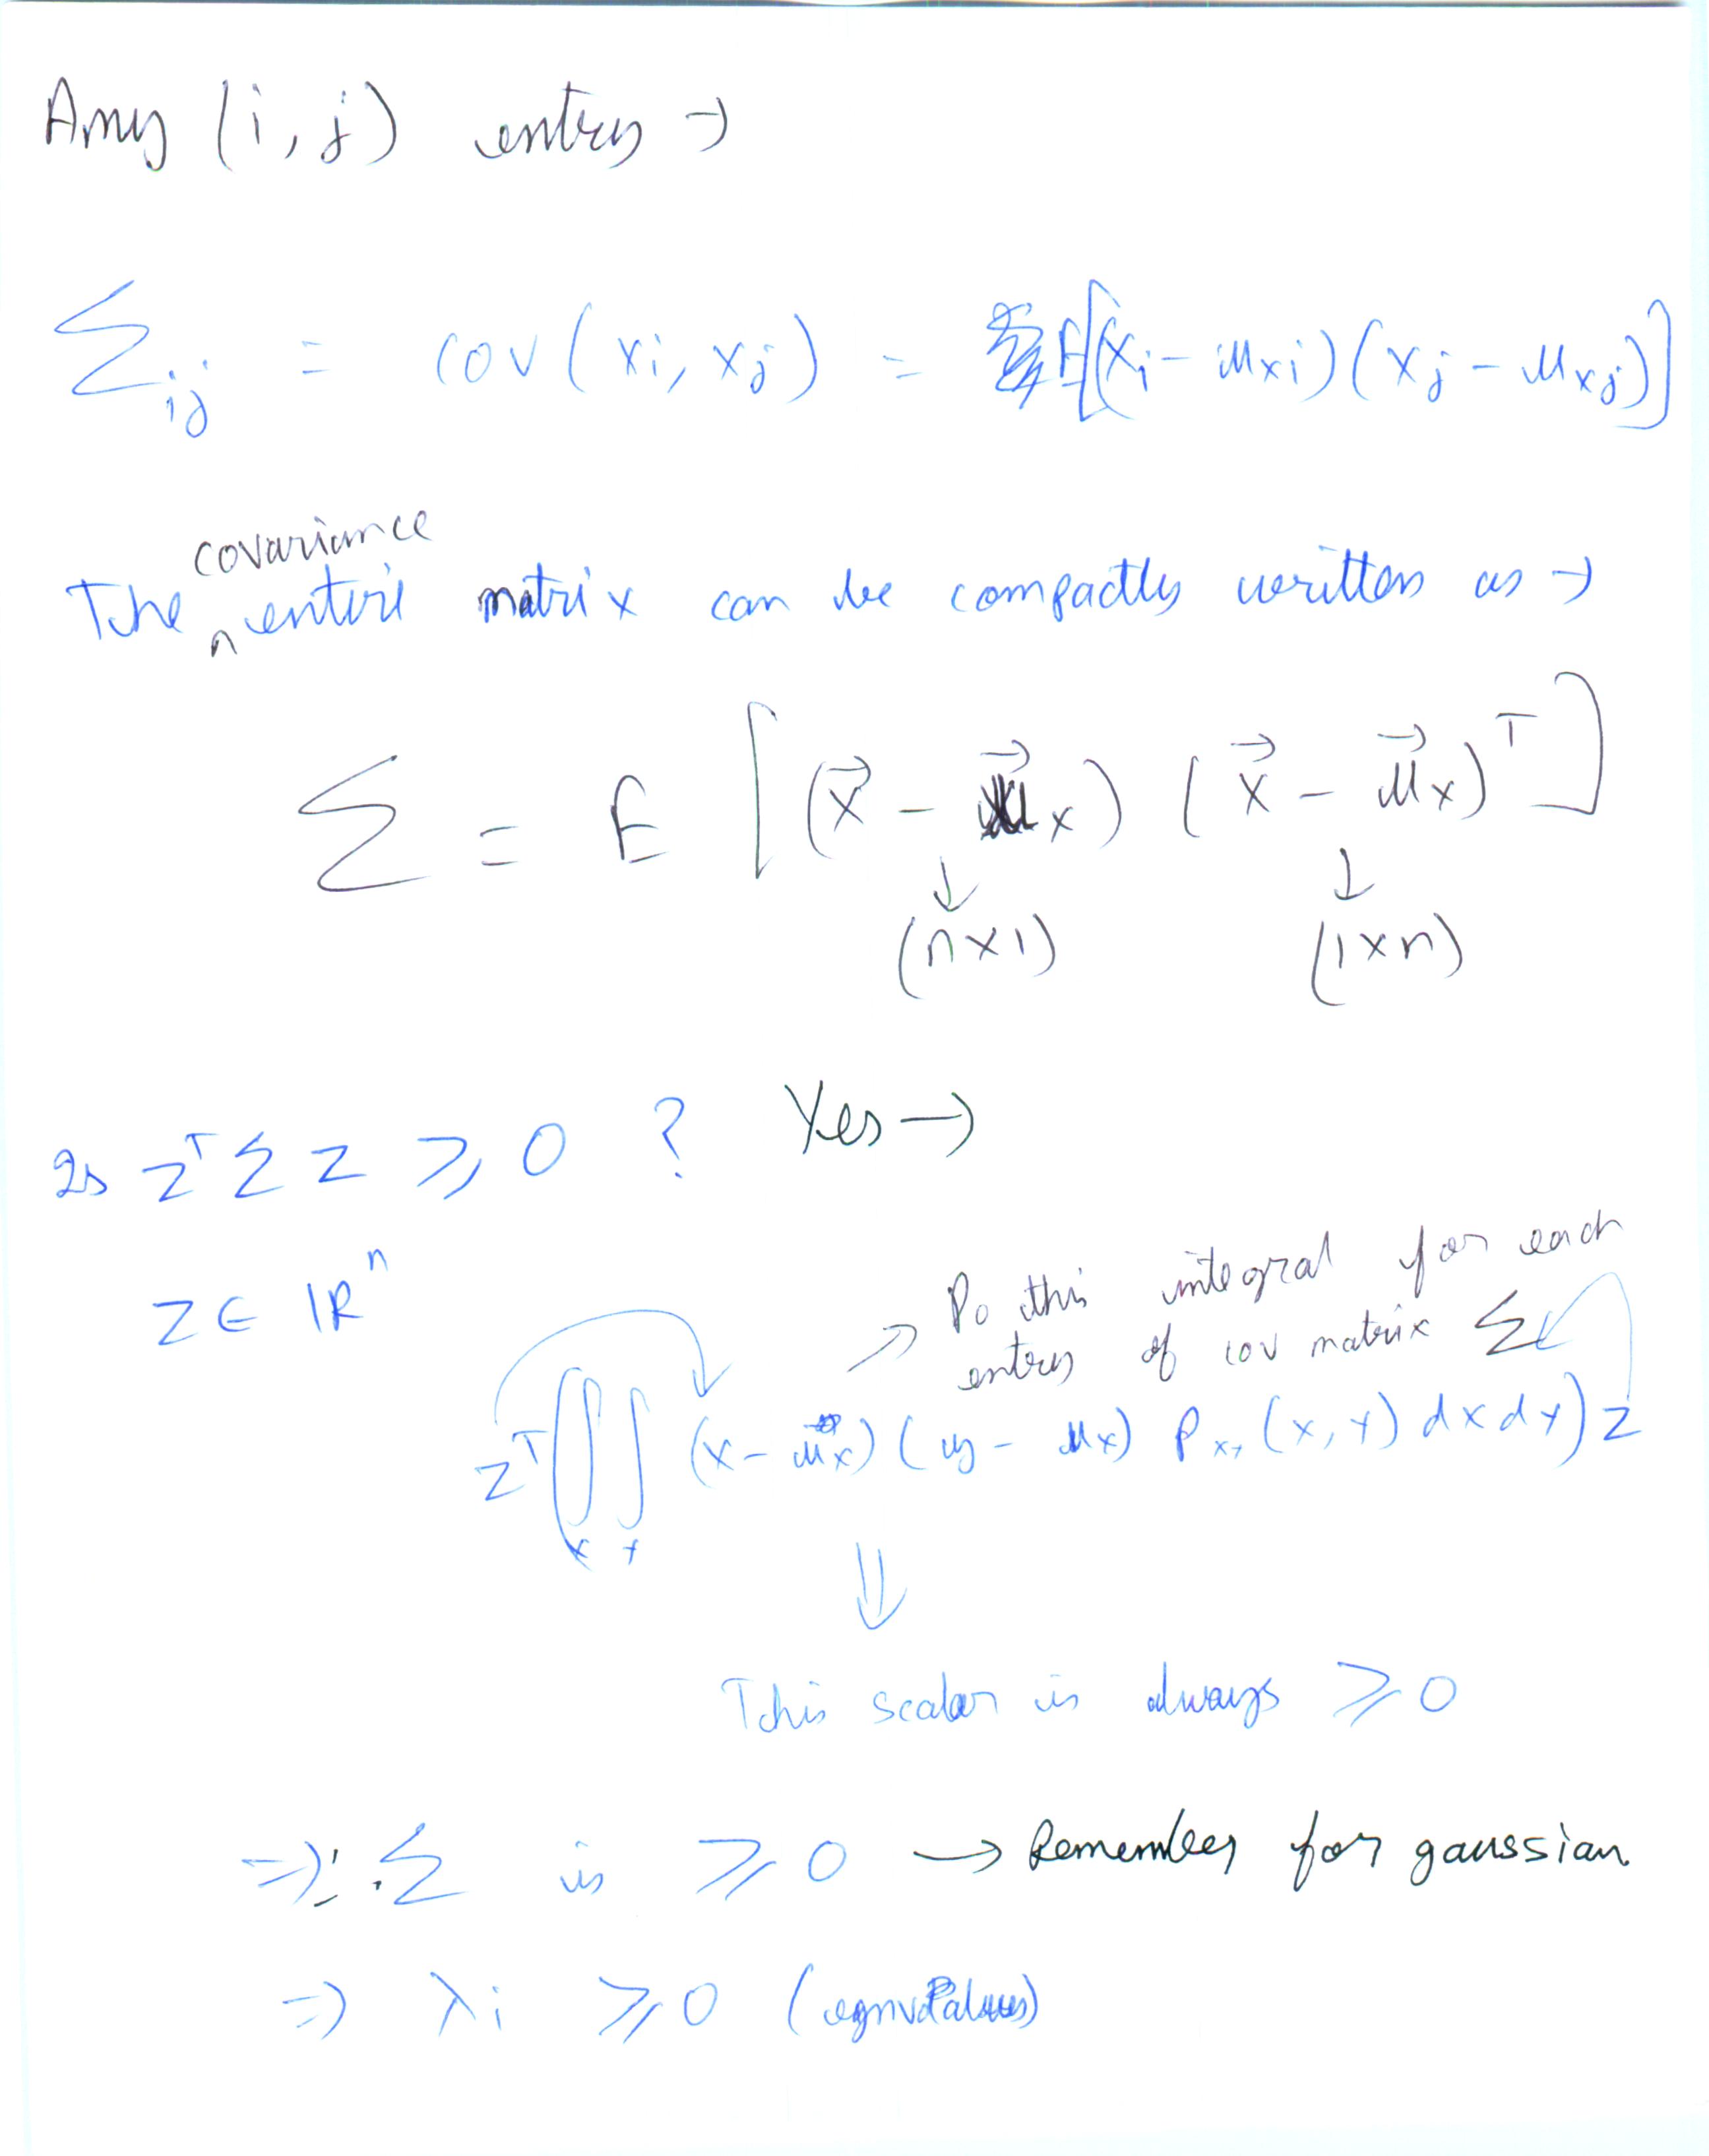 Any (i, j) entry →
Σij = cov(xi, xj) = E[(xi - μxi)(xj - μxj)]
covariance
The ^ entire matrix can be compactly written as →
Σ = E [(x⃗ - μ⃗x) (x⃗ - μ⃗x)^T]
↓ ↓
(n×1) (1×n)
Is z^T Σ z ≥ 0 ? Yes →
z ∈ ℝ^n
→ Do this integral for each
entry of cov matrix Σ
z^T (∫∫ (x - μx) (y - μx) Px,y (x, y) dx dy) z
x y
⇓
This scalar is always ≥ 0
⇒ ∴ Σ is ≥ 0 → Remember for gaussian
⇒ λi ≥ 0 (egnvalues)